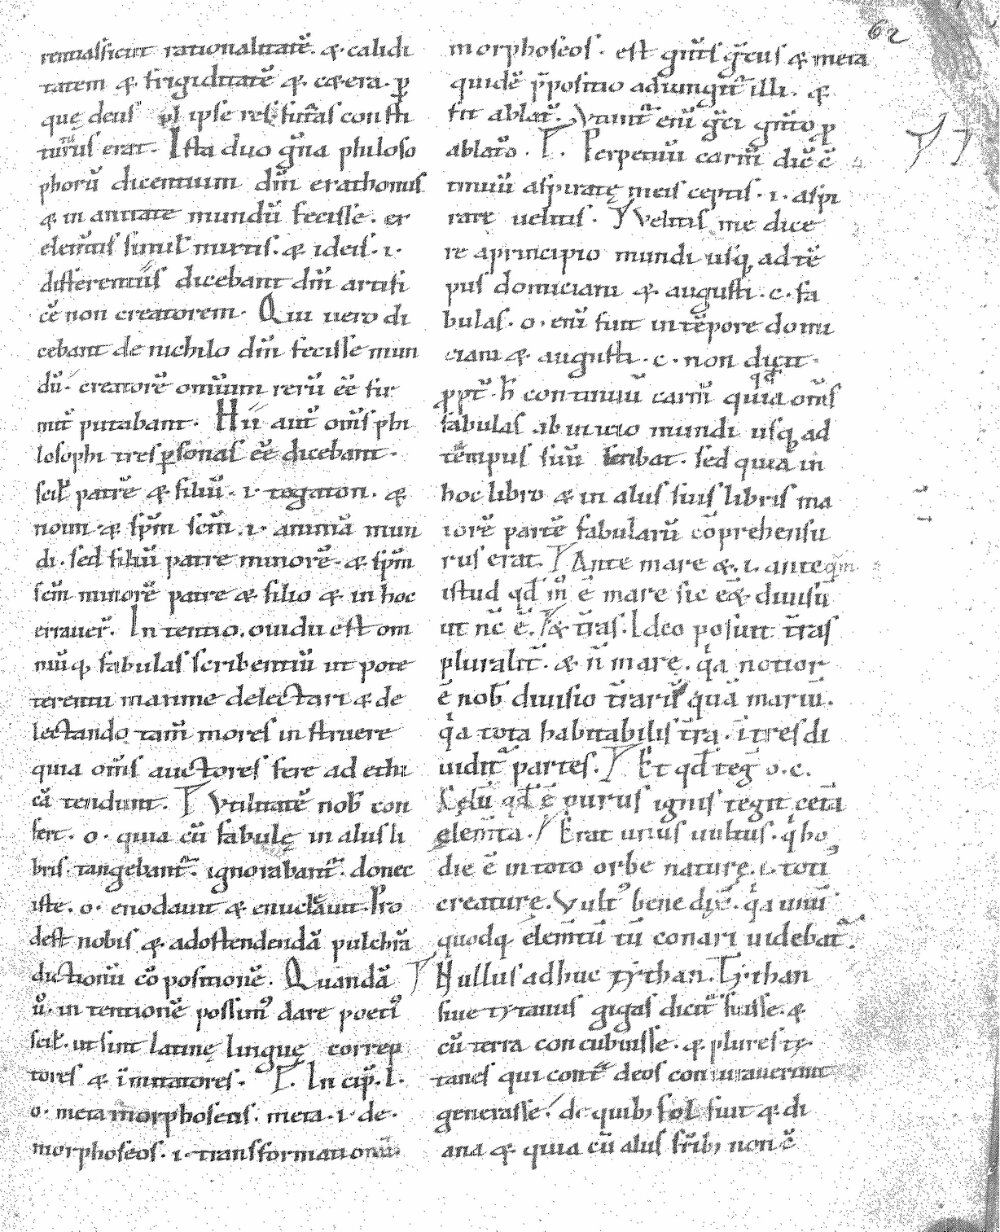 62
rationalitatē. & calidi
tatem & frigiditatē & cętera. ꝑ
quę deus ł ipse res futᷓas consti
turus erat. Ista duo gͥna philoso
phorū dicentium dm̄ & rathonus
& in antitate mundū fecisse. &
elem̄tis simul mixtis. & ideis .i.
differentiis dicebant dm̄ artifi
cē non creatorem. Qui uero di
cebant de nichilo dm̄ fecisse mun
dū. creatorē omīum rerū eē fir
mit̄ putabant. Hii aut̄ om̄s phi
losophi tres ꝑsonas eē dicebant.
scił patrē & filiū .i. togaton. &
noun. & sp̄m sc̄m .i. animā mun
di. sed filiū patre minorē. & sp̄m
sc̄m minorē patre & filio & in hoc
errauer̄. Intentio ouidii est om
niūq; fabulas scribentiū ut pote
terentii maxime delectari & de
lectando tam̄ mores instruere
quia om̄s auctores fere ad ethi
cā tendunt. Vtilitatē nob̄ con
fert .o. quia cū fabulę in aliis li
bris tangebant᷑. ignorabant᷑. donec
iste .o. enodauit & enucleauit. Pro
dest nobis & ad ostendendā pulchrā
dictionū cōpositionē. Quandā
ū. intentionē possum᷒ dare poetis
scił. ut sint latinę linguę correp
tores & imitatores. Incip̄. l.
o. metamorphoseos. meta .i. de.
morphoseos .i. transformationū.
morphoseos. est gn̄ts gͥcus & meta
quidē p̄positio adiungit᷑ illi. &
fit ablat᷑. Vtunt᷑ enī gͥci gn̄to ꝑ
ablato. Perpetuū carm̄ dic̄ c̄
tinuū aspiratę meis ceptis .i. aspi
rate uelitis. Velitis me dice
re a principio mundi usq; ad tē
pus domiciani & augusti .c. fa
bulas .o. enī fuit in tēpore domi
ciani & augusti .c. non dicit
ꝓpt̄ h̄ continuū carm̄ quia om̄s
fabulas ab initio mundi usq; ad
tēmpus suū scribat. sed quia in
hoc libro & in aliis suis libris ma
iorē partē fabularū cōprehensu
rus erat. Ante mare & .i. anteqͣm
istud qd̄ m̄ ē mare sic eēt diuisū
ut nc̄ ē. & t̄ras. Ideo posuit t̄ras
pluralit̄. & n̄ mare. qͥa notior
ē nob̄ diuisio t̄rarū quā mariū.
qͥa tota habitabilis t̄ra. ī tres di
uidit᷑ partes. Et qd̄ teg̅ o. c.
Cęlū qd̄ ē purus ignis tegit cet̄a
elem̄ta. Erat unus uultus. qͥ ho
die ē in toto orbe naturę .i. toti᷒
creaturę. Vult᷒ bene dic̄. qͥa unū
quodq; elem̄tū tū conari uidebat᷑.
Nullus adhuc tythan. Tythan
siue tytanus gigas dicit᷑ fuisse. &
cū terra concubuisse. & plures ty
tanes qui contͣ deos coniurauerunt
generasse. de quib; sol fuit & di
ana & quia cū aliis fr̄ib; non ē